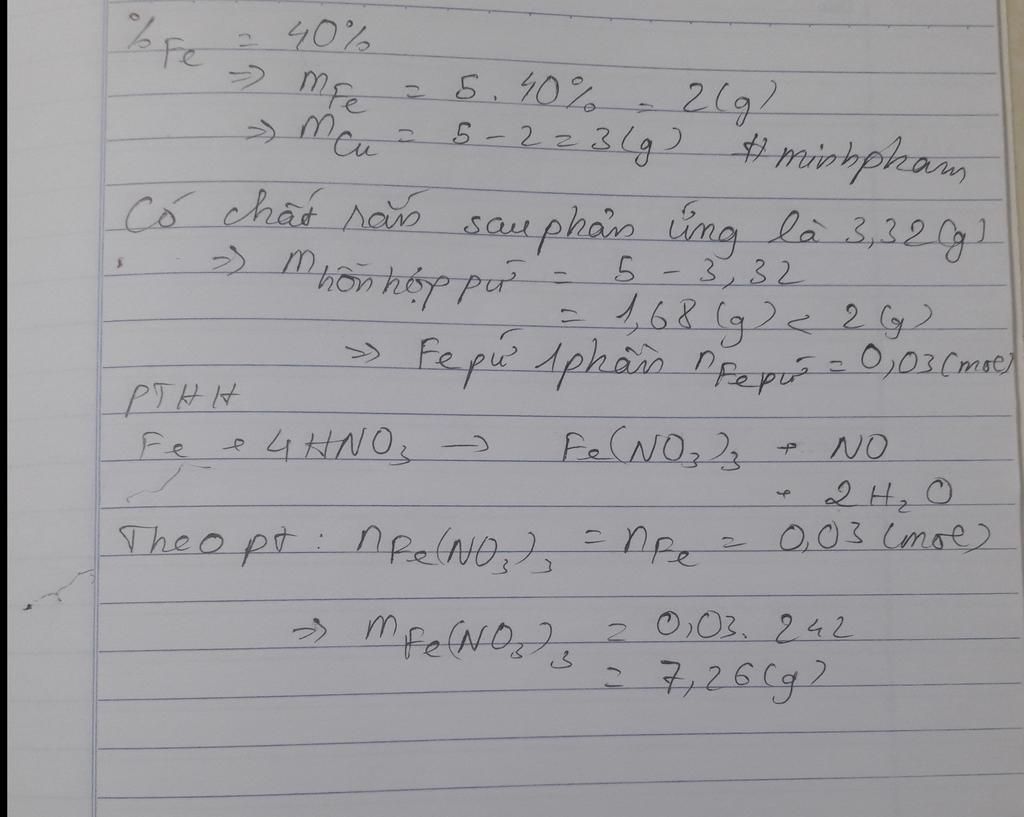 %Fe = 40%
=> mFe = 5 . 40% = 2(g)
=> mCu = 5 - 2 = 3(g) #minhpham
Có chất rắn sau phản ứng là 3,32(g)
=> mhỗn hợp pứ = 5 - 3,32
= 1,68 (g) < 2 (g)
=> Fe pứ 1 phần nFe pứ = 0,03 (mol)
PTHH
Fe + 4HNO3 -> Fe(NO3)3 + NO
+ 2H2O
Theo pt : nFe(NO3)3 = nFe = 0,03 (mol)
=> mFe(NO3)3 = 0,03. 242
= 7,26(g)